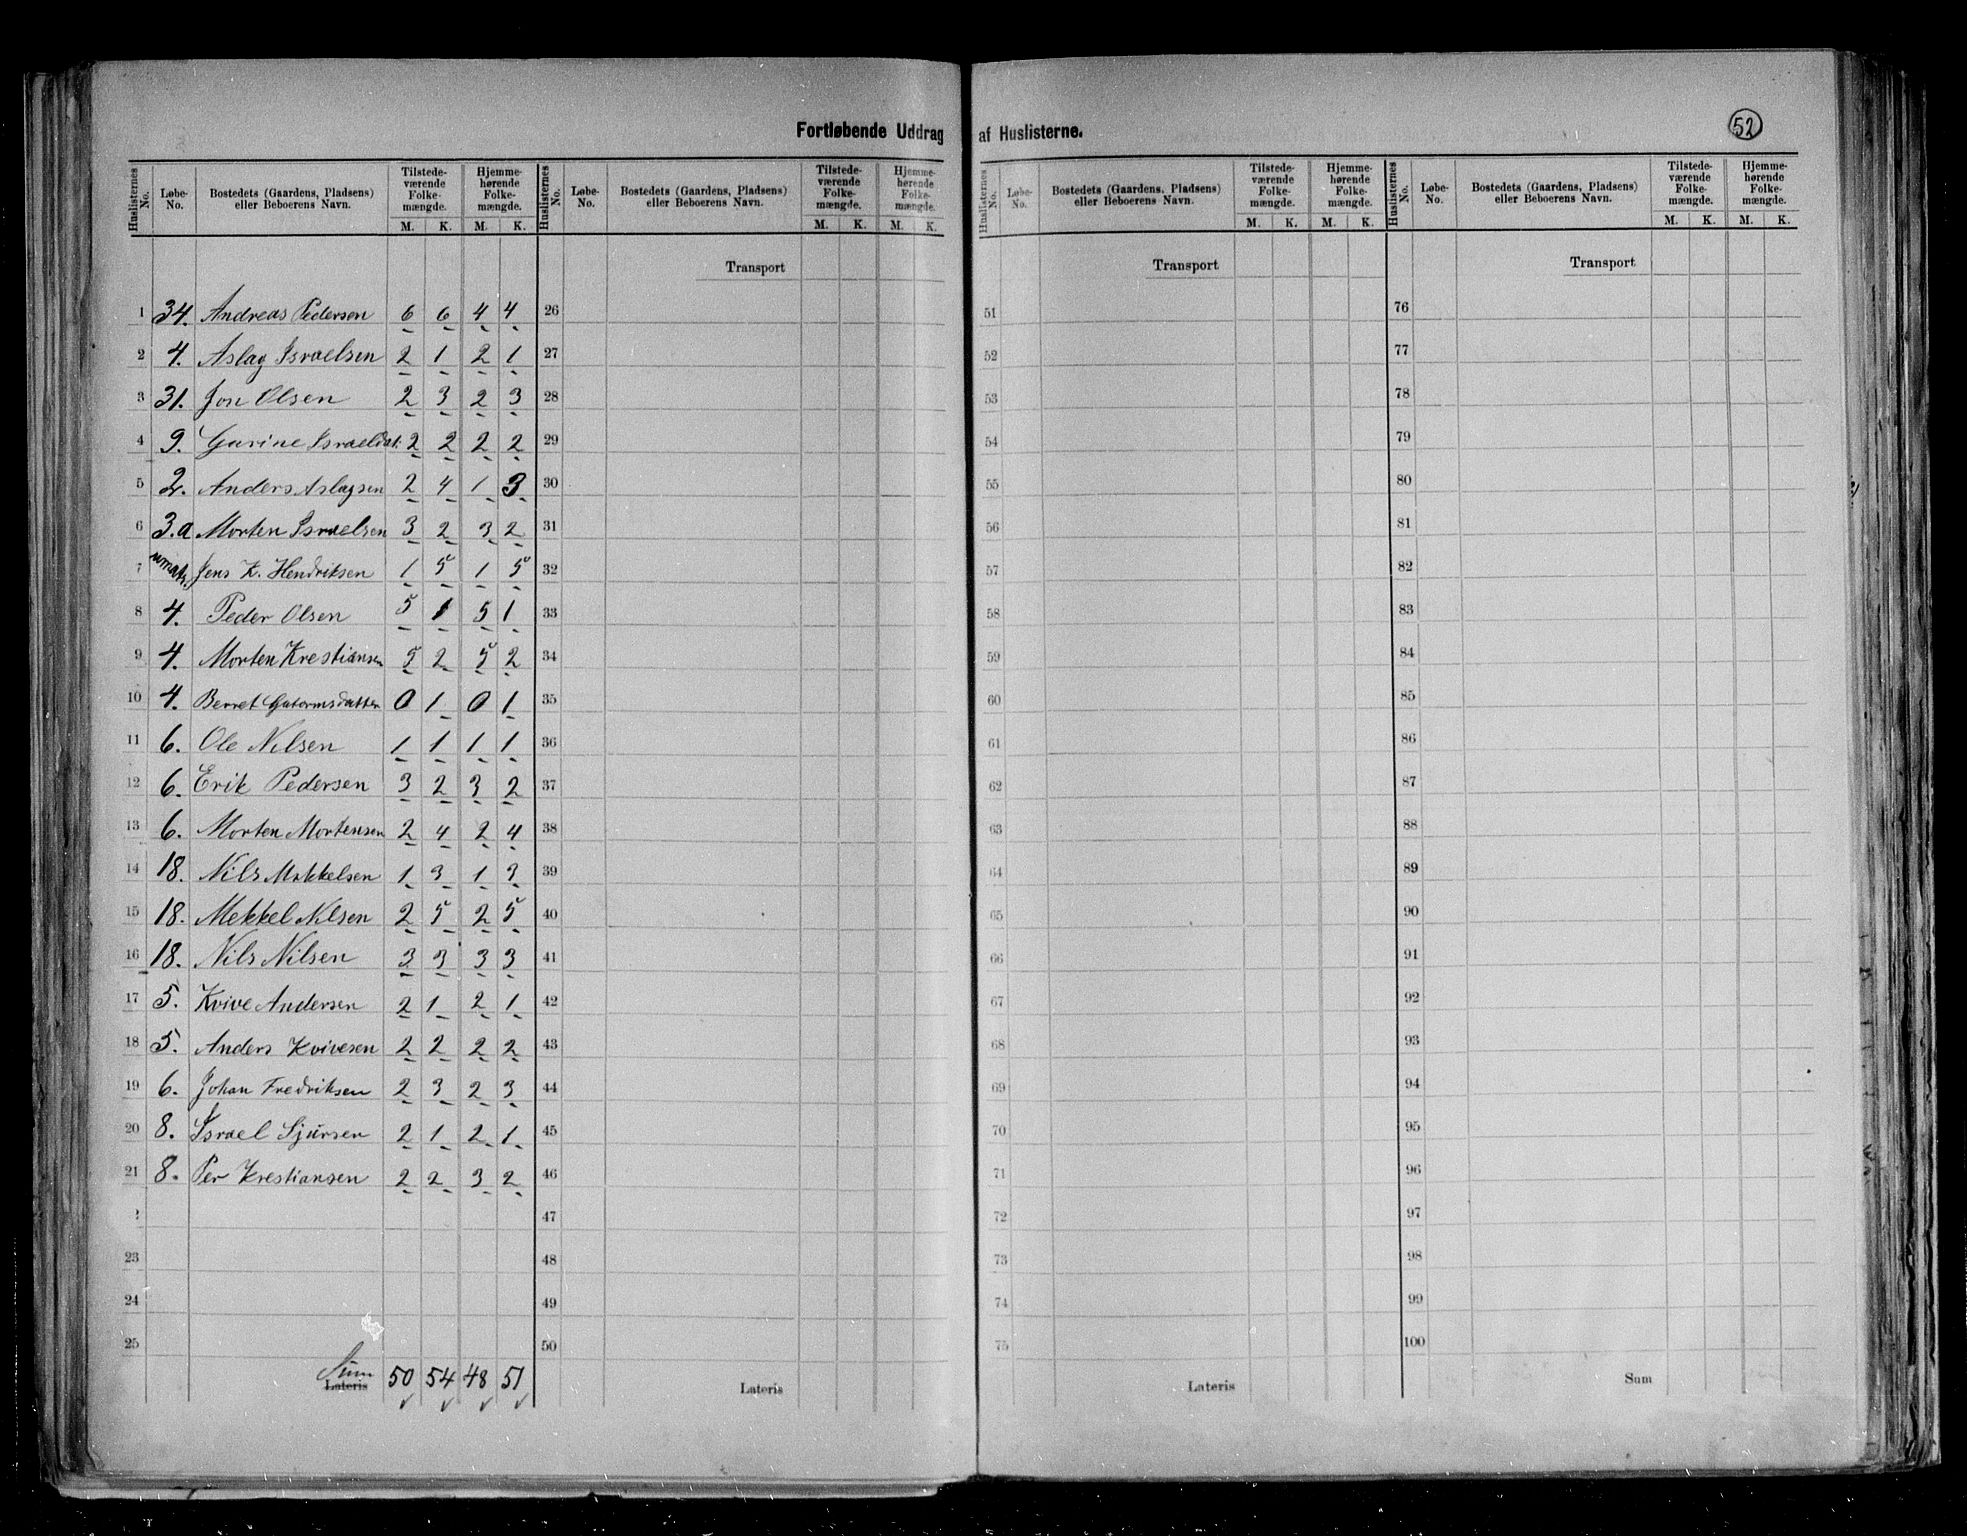 Fortløbende Uddrag af Huslisterne.
52
Huslisternes No. | Løbe-No. | Bostedets (Gaardens, Pladsens) eller Beboerens Navn. | Tilstedeværende Folkemængde. M. K. | Hjemmehørende Folkemængde. M. K.
Huslisternes No. | Løbe-No. | Bostedets (Gaardens, Pladsens) eller Beboerens Navn. | Tilstedeværende Folkemængde. M. K. | Hjemmehørende Folkemængde. M. K.
Huslisternes No. | Løbe-No. | Bostedets (Gaardens, Pladsens) eller Beboerens Navn. | Tilstedeværende Folkemængde. M. K. | Hjemmehørende Folkemængde. M. K.
Huslisternes No. | Løbe-No. | Bostedets (Gaardens, Pladsens) eller Beboerens Navn. | Tilstedeværende Folkemængde. M. K. | Hjemmehørende Folkemængde. M. K.
Transport Transport Transport
1 34. Andreas Pedersen 6 6 4 4 26 51 76
2 4. Aslag Israelsen 2 1 2 1 27 52 77
3 31. Jon Olsen 2 3 2 3 28 53 78
4 9. Gurine Israeldat: 2 2 2 2 29 54 79
5 2. Anders Aslagsen 2 4 1 3 30 55 80
6 3.a Morten Israelsen 3 2 3 2 31 56 81
7 umatr. Jens K. Hendriksen 1 5 1 5 32 57 82
8 4. Peder Olsen 5 1 5 1 33 58 83
9 4. Morten Krestiansen 5 2 5 2 34 59 84
10 4. Berret Gutormsdatter 0 1 0 1 35 60 85
11 6. Ole Nilsen 1 1 1 1 36 61 86
12 6. Erik Pedersen 3 2 3 2 37 62 87
13 6. Morten Mortensen 2 4 2 4 38 63 88
14 18. Nils Mekkelsen 1 3 1 3 39 64 89
15 18. Mekkel Nilsen 2 5 2 5 40 65 90
16 18. Nils Nilsen 3 3 3 3 41 66 91
17 5. Kvive Andersen 2 1 2 1 42 67 92
18 5. Anders Kvivesen 2 2 2 2 43 68 93
19 6. Johan Fredriksen 2 3 2 3 44 69 94
20 8. Israel Sjursen 2 1 2 1 45 70 95
21 8. Per Krestiansen 2 2 3 2 46 71 96
2 47 72 97
23 48 73 98
24 49 74 99
25 50 75 100
Sum
Lateris 50 54 48 51 Lateris Lateris Sum